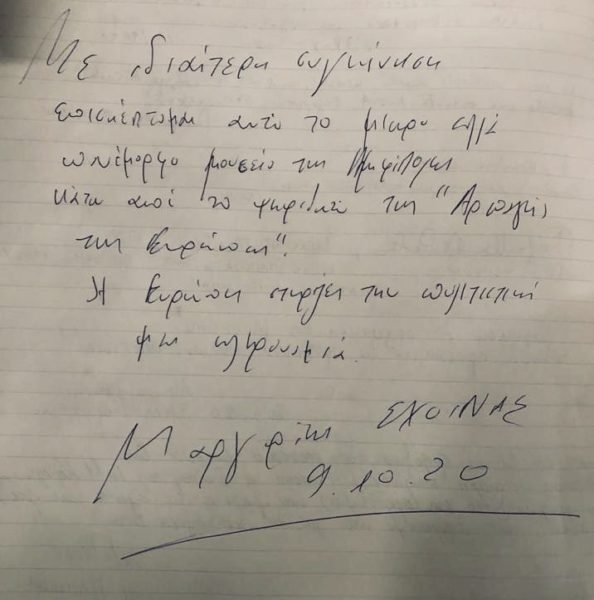 Με ιδιαίτερη συγκίνηση
επισκέπτομαι αυτό το μικρό αλλά
πανέμορφο μουσείο της Αμφίπολης
κάτω από το ψηφιδωτό της "Αρπαγής
της Ευρώπης".
Η Ευρώπη στηρίζει την πολιτιστική
μας κληρονομιά.
Μαργαρίτης ΣΧΟΙΝΑΣ
9.10.20